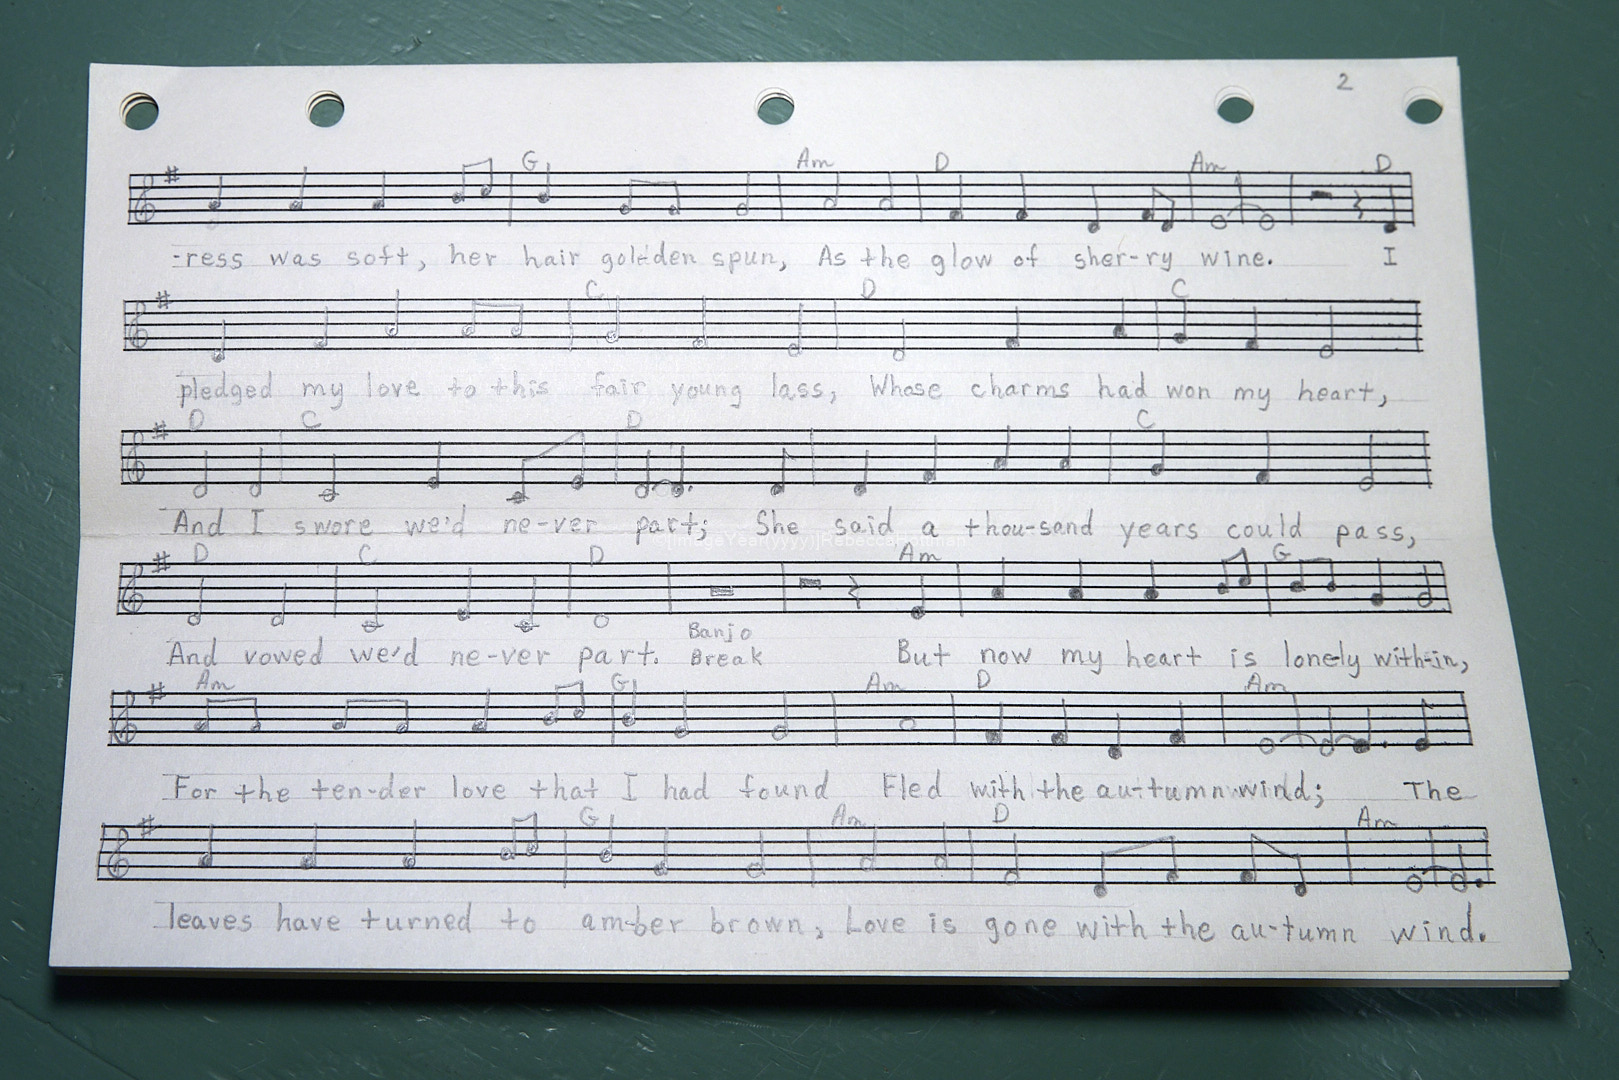 2
G Am D Am D
-ress was soft, her hair golden spun, As the glow of sher-ry wine. I
C D C
pledged my love to this fair young lass, Whose charms had won my heart,
D C D C
And I swore we'd ne-ver part; She said a thou-sand years could pass,
D C D Am G
And vowed we'd ne-ver part. Banjo Break But now my heart is lonely with-in,
Am G Am D Am
For the ten-der love that I had found Fled with the au-tumn wind; The
G Am D Am
leaves have turned to am-ber brown, Love is gone with the au-tumn wind.